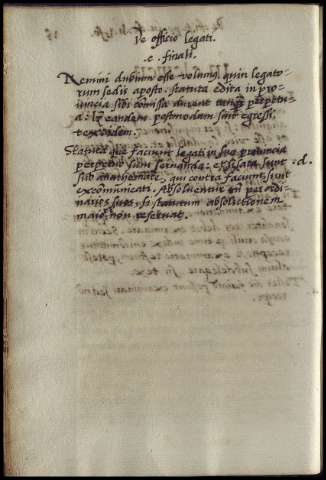 De officio legati.
.c. finali.
Nemini dubium esse volumus, quin legato-
rum sedis aposto. statuta edita in pro-
uincia sibi comissa durent tanquam perpetu-
a: licet eandem postmodum sint egressi.
Statuta que faciunt legati in sua prouincia
perpetuo sunt seruanda: et
sub anathemate, qui contra faciunt, sunt .d.
excomunicati. Absoluentur per ordi-
narios suos, si statutum absolutionem
maiori non reseruat.